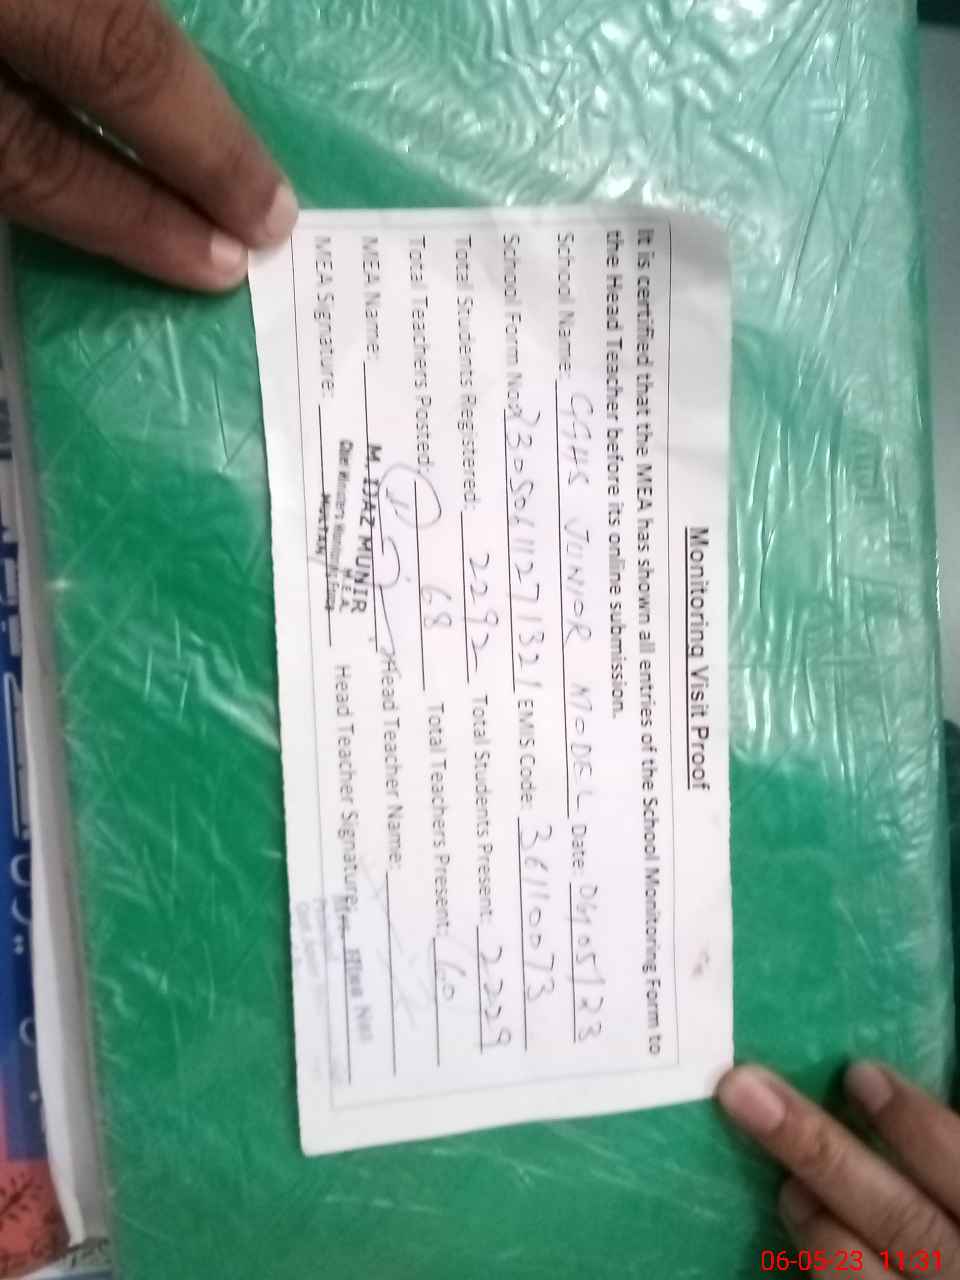 Monitoring Visit Proof
It is certified that the MEA has shown all entries of the School Monitoring Form to
the Head Teacher before its online submission.
School Name: GGHS JUNIOR MODEL Date: 06/05/23
School Form No: 23050611271321 EMIS Code: 36110073
Total Students Registered: 2292 Total Students Present: 2229
Total Teachers Posted: 68 Total Teachers Present: 60
MEA Name: M. IJAZ MUNIR Head Teacher Name:
M.E.A.
MEA Signature: Head Teacher Signature:
06-05-23 11:31